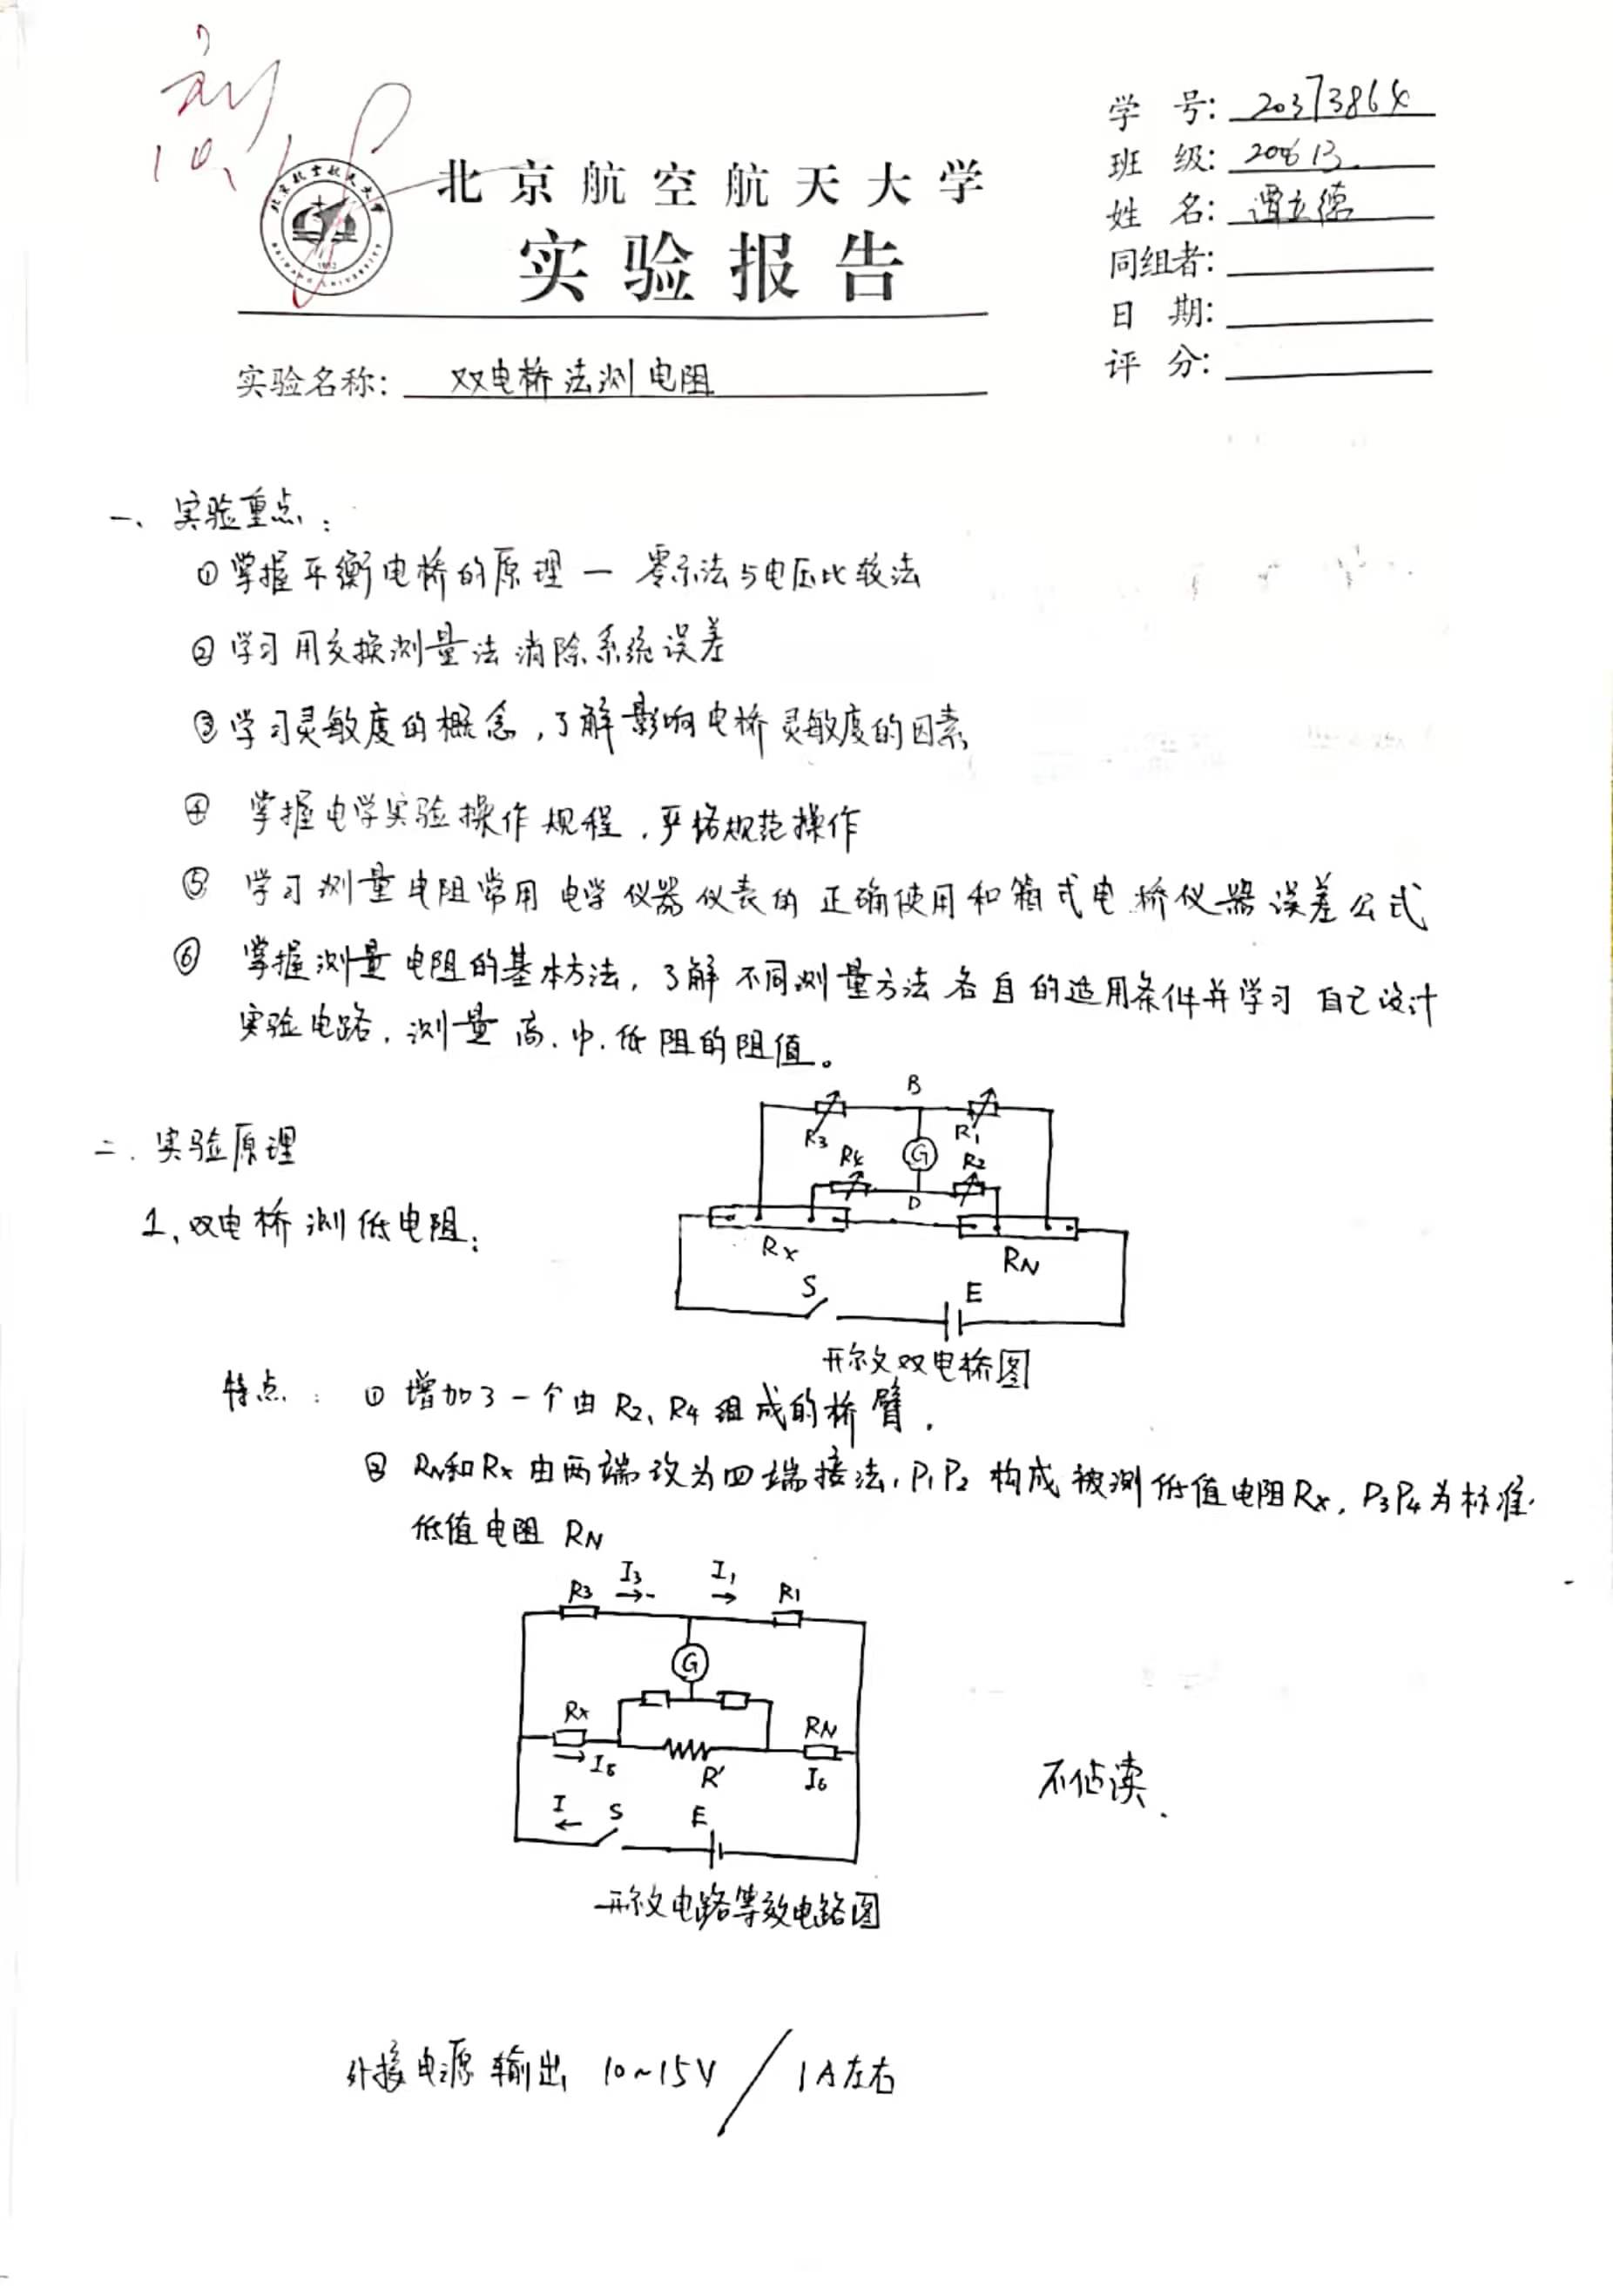 学 号: 20373864
班 级: 200613
姓 名: 谭立德
同组者:
日 期:
评 分:
北京航空航天大学
实验报告
实验名称: 双电桥法测电阻
一、实验重点:
①掌握平衡电桥的原理一 零示法与电压比较法
②学习用交换测量法消除系统误差
③学习灵敏度的概念,了解影响电桥灵敏度的因素
④ 掌握电学实验操作规程,严格规范操作
⑤ 学习测量电阻常用电学仪器仪表的正确使用和箱式电桥仪器误差公式
⑥ 掌握测量电阻的基本方法,了解不同测量方法各自的适用条件并学习自己设计
实验电路,测量高、中、低阻的阻值。
二. 实验原理
1、双电桥测低电阻:
B
R3 R1
G
R4 R2
D
Rx RN
S E
开尔文双电桥图
特点: ① 增加了一个由R2、R4组成的桥臂.
② RN和Rx由两端改为四端接法,P1P2构成被测低值电阻Rx, P3P4为标准
低值电阻RN
I3 I1
R3 R1
G
Rx RN
I5 R' I6
I S E
开尔文电路等效电路图
不估读.
外接电源输出 10~15V / 1A左右